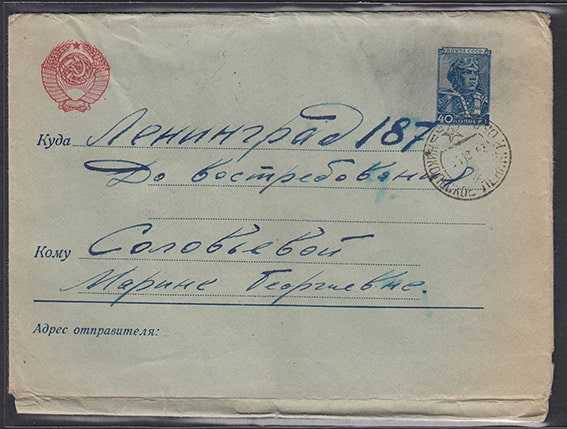 ПОЧТА СССР
40 КОПЕЕК
Куда Ленинград 187
До востребования
Кому Соловьевой
Марине Георгиевне.
Адрес отправителя: